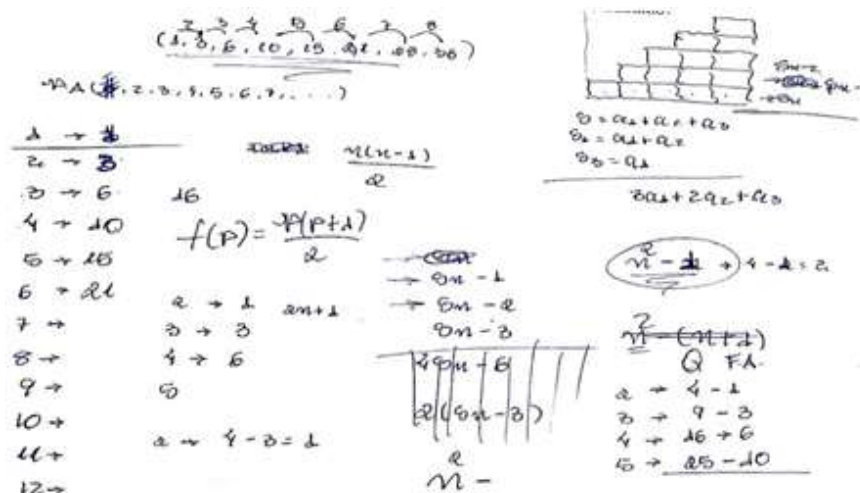 2 3 4 5 6 7 8
(1, 3, 6, 10, 15, 21, 28, 36)
2, 3, 4, 5, 6, 7, ...)
1 → 1
2 → 3
3 → 6
4 → 10
5 → 15
6 → 21
7 →
8 →
9 →
10 →
11 →
12 →
n(n-1)
2
16
f(p) = p(p+1)
2
2 → 1 2n+1
3 → 3
4 → 6
5
2 → 4-3=1
→ Sn-1
→ Sn-2
Sn-3
4Sn-6
2(Sn-3)
n² -
Sn-2
→ Sn
S = a1+a2+a3
S2 = a1+a2
S3 = a1
3a1+2a2+a3
n² - 1 → 4-2=2
n² - (n+1)
Q FA.
2 → 4-1
3 → 9-3
4 → 16→6
5 → 25-10